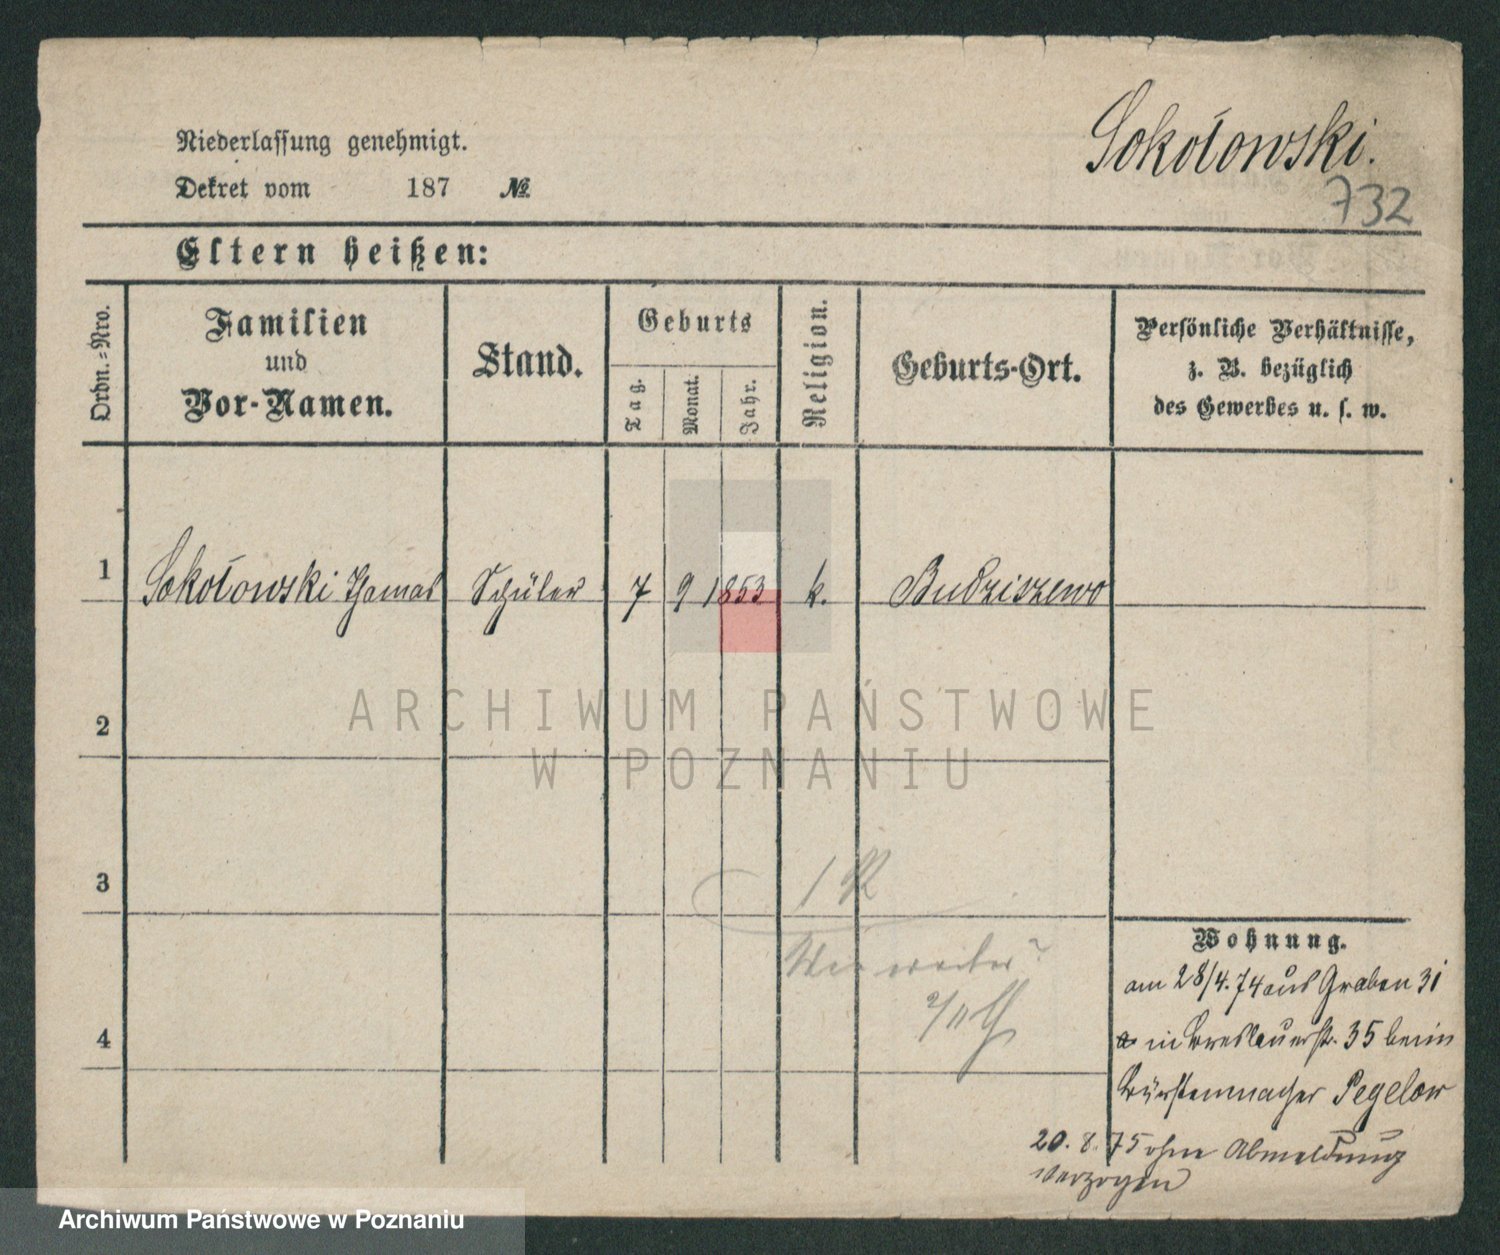 Niederlassung genehmigt.
Dekret vom 187 №
Sokołowski.
732
Eltern heißen:
Ordn.-Nro.
Familien
und
Vor-Namen.
Stand.
Geburts
Tag.
Monat.
Jahr.
Religion.
Geburts-Ort.
Persönliche Verhältnisse,
z. B. bezüglich
des Gewerbes u. s. w.
1 Sokołowski Thomas Schüler 7 9 1853 k. Budziszewo
2
ARCHIWUM PAŃSTWOWE
W POZNANIU
3
4
Wohnung.
am 28/4.74 aus Graben 31
in Breslauerstr. 35 beim
Bürstenmacher Pegelow
20.8.75 ohne Abmeldung
verzogen
Archiwum Państwowe w Poznaniu